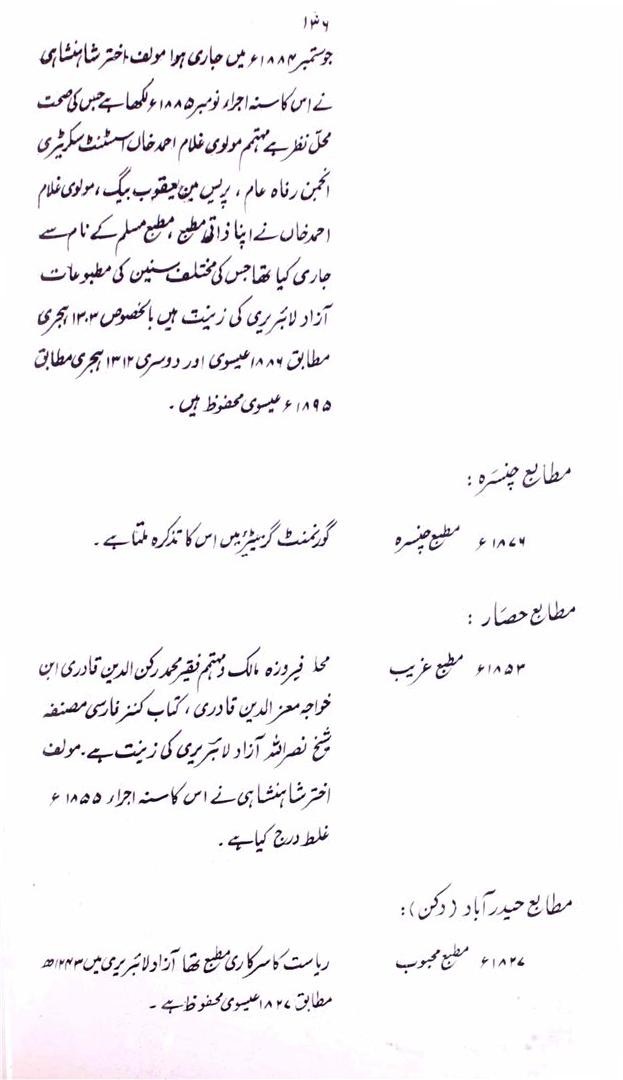 ۱۳۶
جو ستمبر ۱۸۸۴ء میں جاری ہوا مولف اختر شاہنشاہی
نے اس کا سنہ اجراء نومبر ۱۸۸۵ء لکھا ہے جس کی صحت
محل نظر ہے مہتمم مولوی غلام احمد خاں اسسٹنٹ سکریٹری
انجمن رفاہ عام ، پریس مین یعقوب بیگ ، مولوی غلام
احمد خاں نے اپنا ذاتی مطبع ، مطبع مسلم کے نام سے
جاری کیا تھا جس کی مختلف سنین کی مطبوعات
آزاد لائبریری کی زینت ہیں بالخصوص ۱۳۰۳ ہجری
مطابق ۱۸۸۶ عیسوی اور دوسری ۱۳۱۲ ہجری مطابق
۱۸۹۵ء عیسوی محفوظ ہیں ۔
مطابع چنسرہ :
۱۸۷۶ء مطبع چنسرہ گورنمنٹ گزیٹیر میں اس کا تذکرہ ملتا ہے ۔
مطابع حصار :
۱۸۵۳ء مطبع غریب محلہ فیروزہ مالک و مہتمم فقیر محمد رکن الدین قادری ابن
خواجہ معز الدین قادری ، کتاب کنز فارسی مصنفہ
شیخ نصر اللہ آزاد لائبریری کی زینت ہے ۔ مولف
اختر شاہنشاہی نے اس کا سنہ اجراء ۱۸۵۵ء
غلط درج کیا ہے ۔
مطابع حیدرآباد (دکن) :
۱۸۲۷ء مطبع محبوب ریاست کا سرکاری مطبع تھا آزاد لائبریری میں ۱۲۴۳ھ
مطابق ۱۸۲۷ عیسوی محفوظ ہے ۔